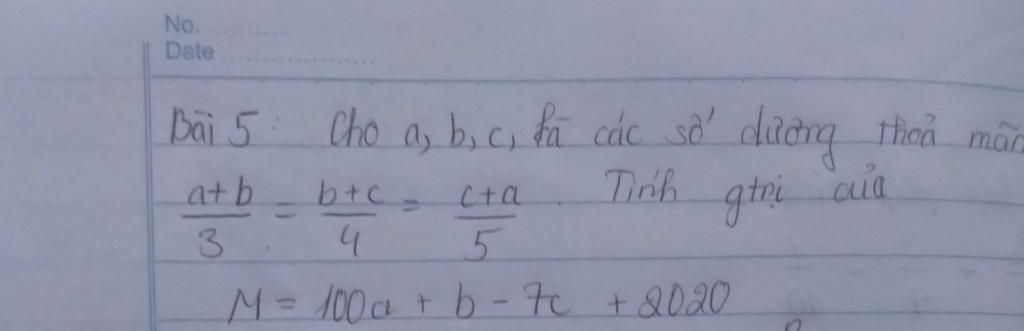 No. ............
Date ....................
Bài 5: Cho a, b, c, là các số dương thoả mãn
a+b/3 = b+c/4 = c+a/5. Tính gtrị của
M = 100a + b - 7c + 2020